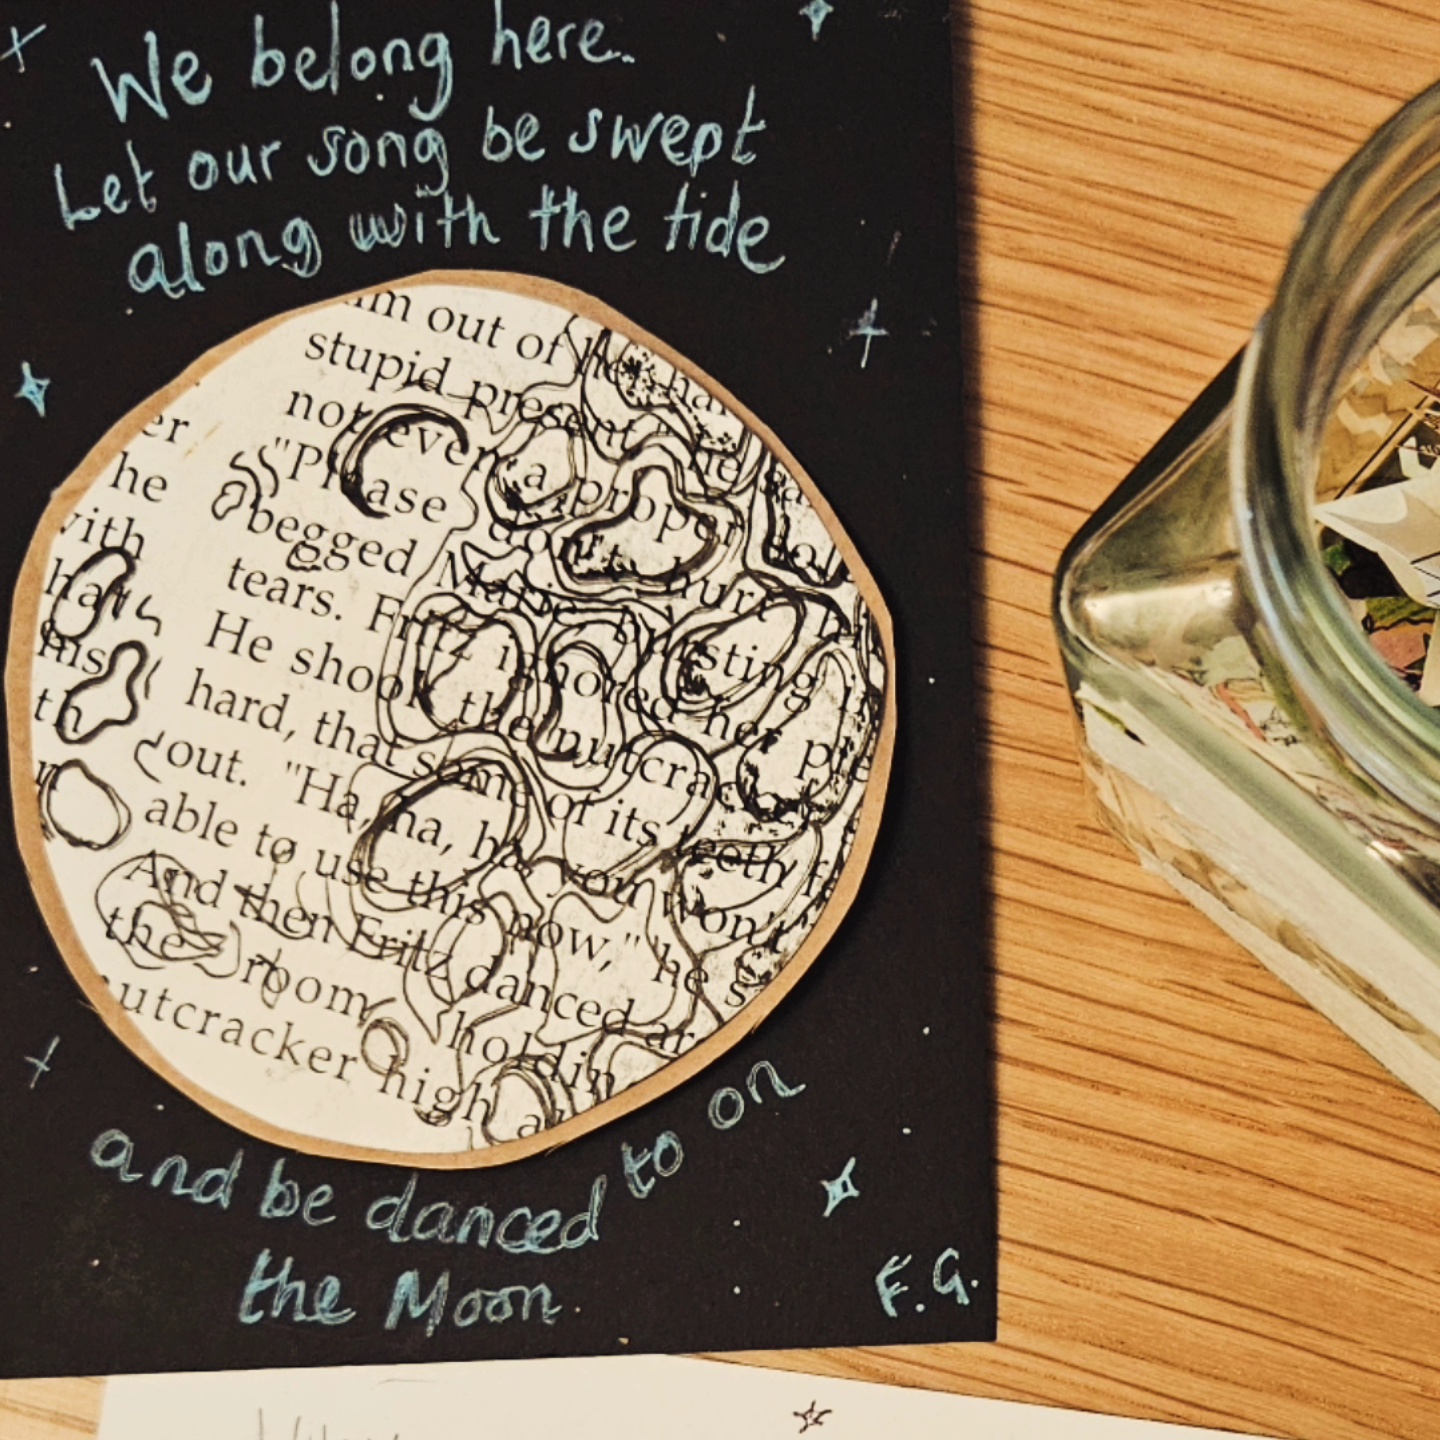 We belong here.
Let our song be swept
along with the tide
out of her
stupid present
er
not even a proper
he
"Please don't hurt
with
begged Marie
tears. Fritz ignored her
his
He shook the nutcrac
th
hard, that some of its teeth
out. "Ha, ha, ha, you won't
able to use this now," he s
And then Fritz danced ar
the room holdin
utcracker high a
and be danced to on
the Moon.
F.G.